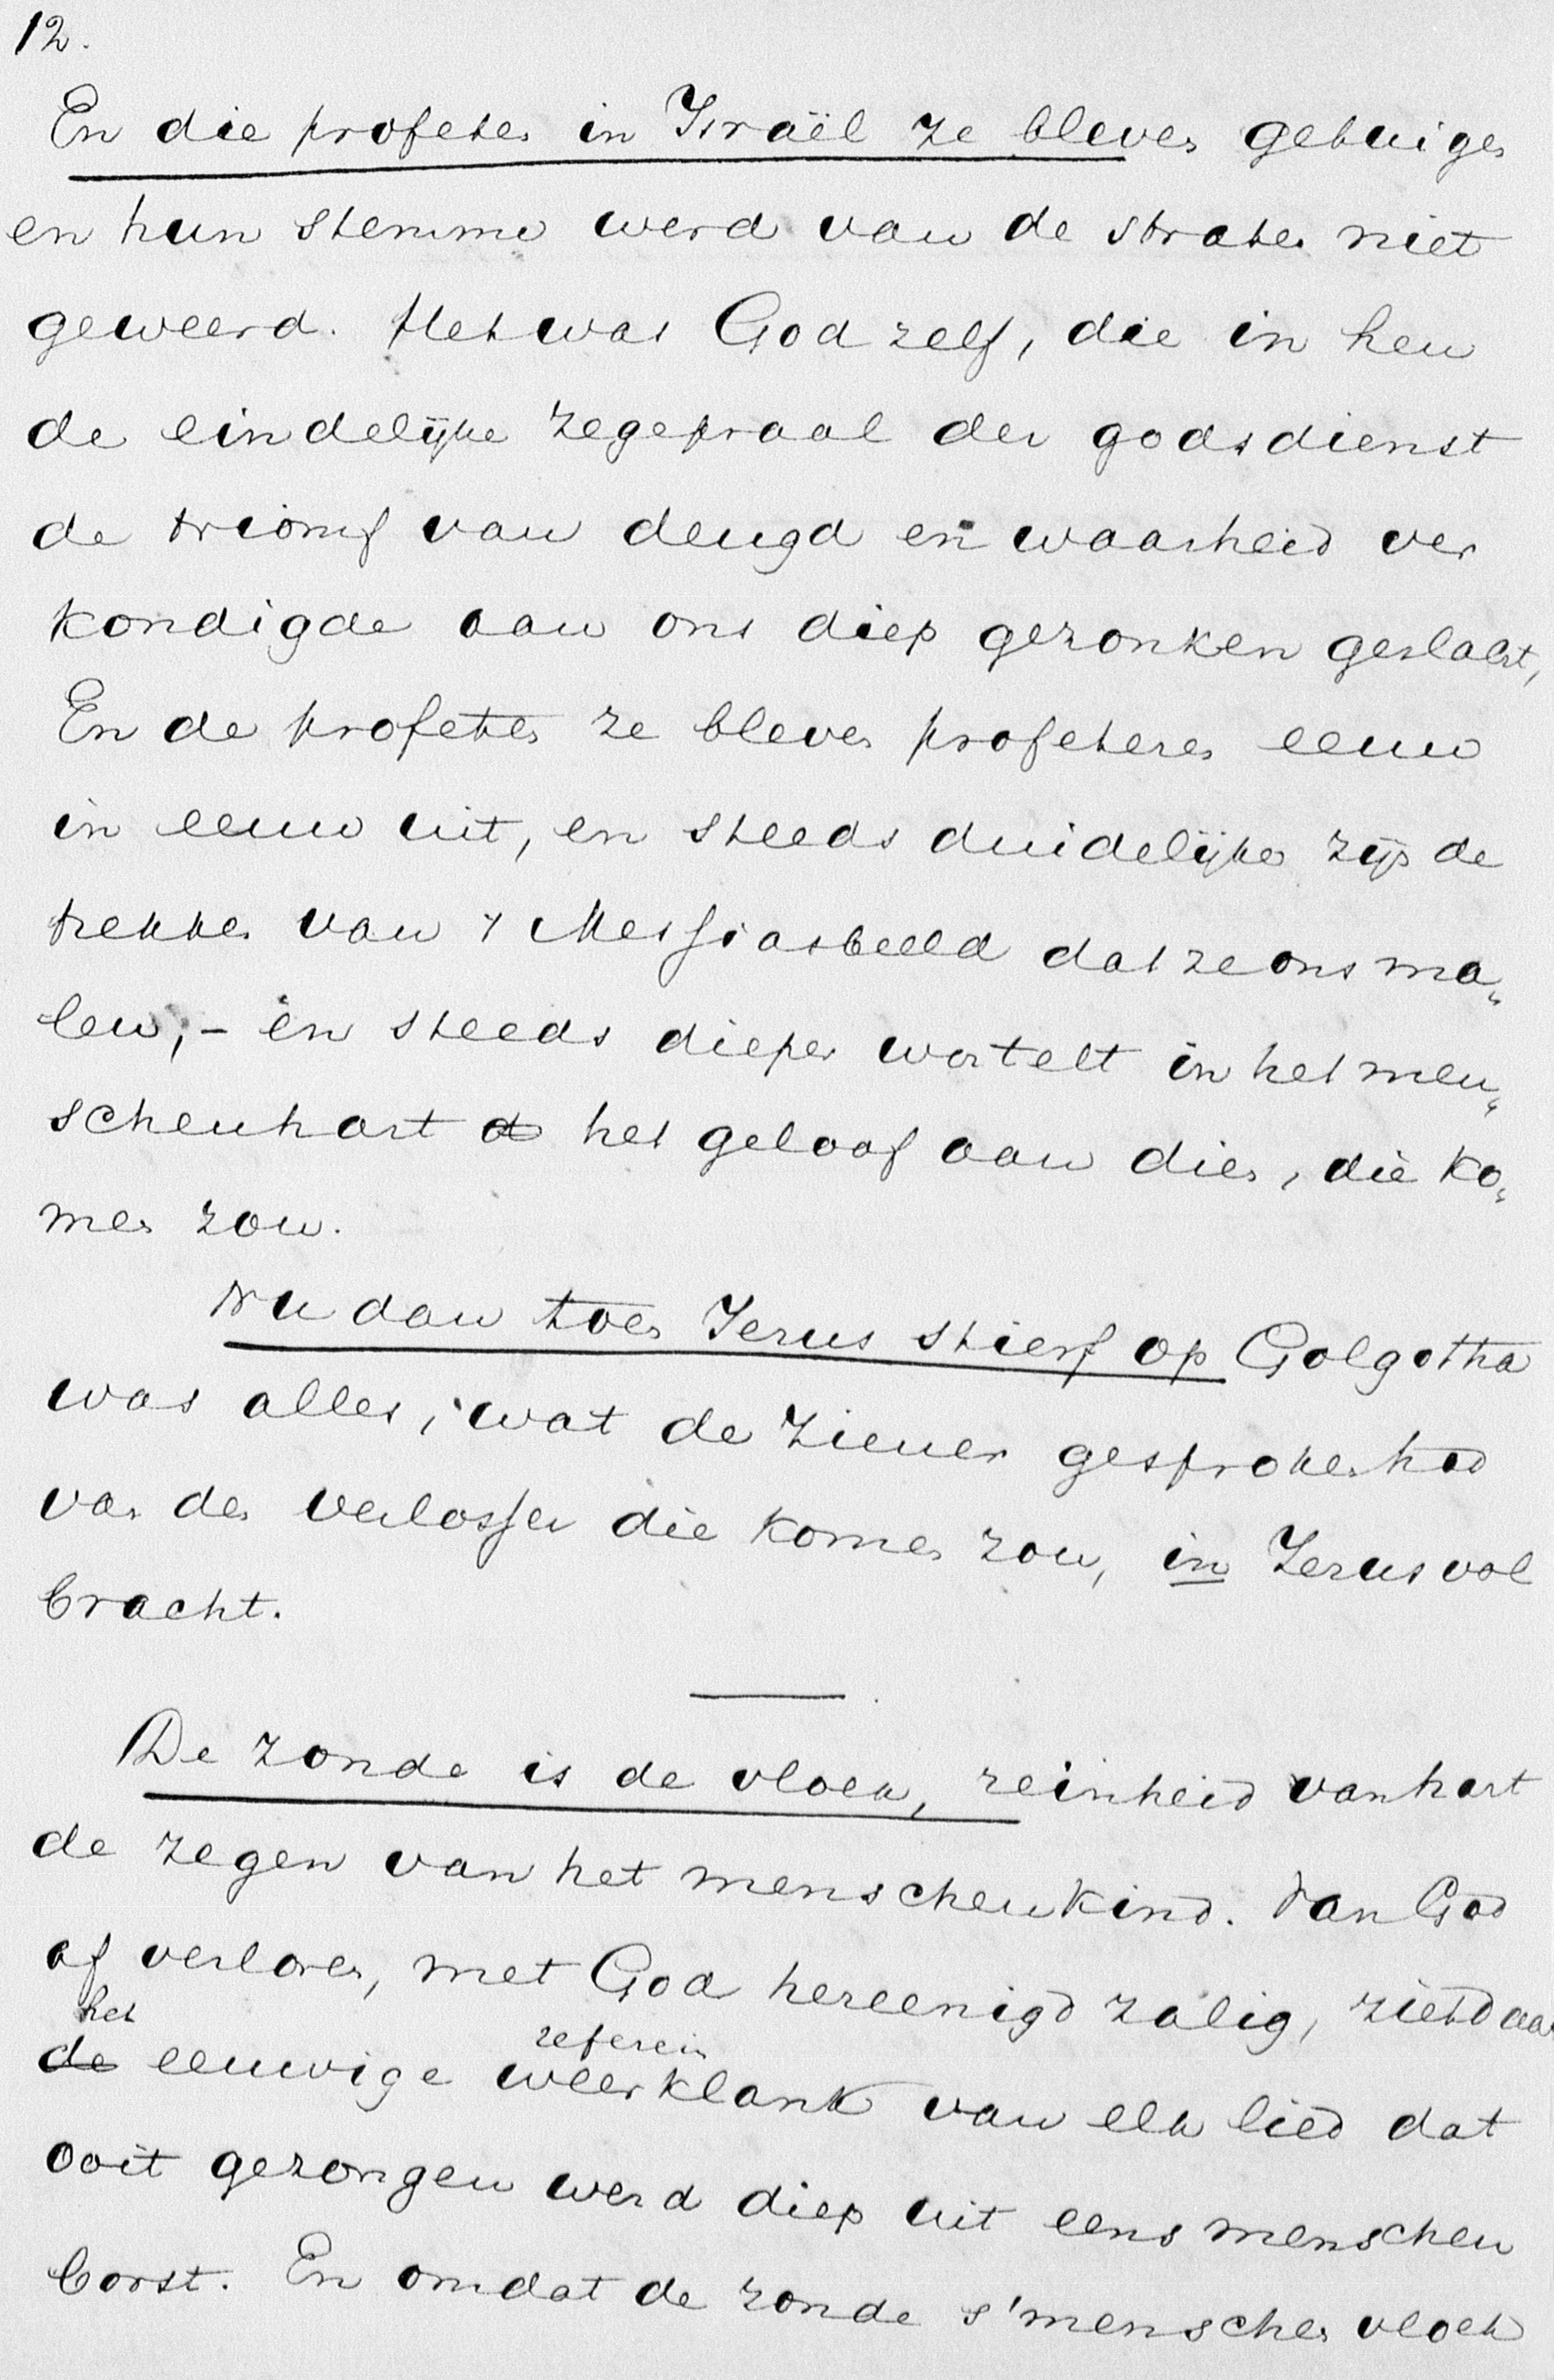 12.
En die profeten in Israël ze bleven getuigen
en hun stemme werd van de straten niet
geweerd. Het was God zelf, die in hen
de eindelijke zegepraal der godsdienst
de triomf van deugd en waarheid ver
kondigde aan ons diep gezonken geslacht,
En de profeten ze bleven profeteren eeuw
in eeuw uit, en steeds duidelijker zijn de
trekken van 't Messiasbeeld dat ze ons ma„
len, - en steeds dieper wortelt in het men„
schenhart het geloof aan dien, die ko„
men zou.
Nu dan toen Jezus stierf op Golgotha
was alles, wat de ziener gesproken had
van den verlosser die komen zou, in Jezus vol
bracht.
De zonde is de vloek, reinheid van hart
de zegen van het menschenkind. Van God
af verloren, met God hereenigd zalig, ziet daar
het
refrein
de eeuwige weerklank van elk lied dat
ooit gezongen werd diep uit eens menschen
borst. En omdat de zonde s'menschen vloek